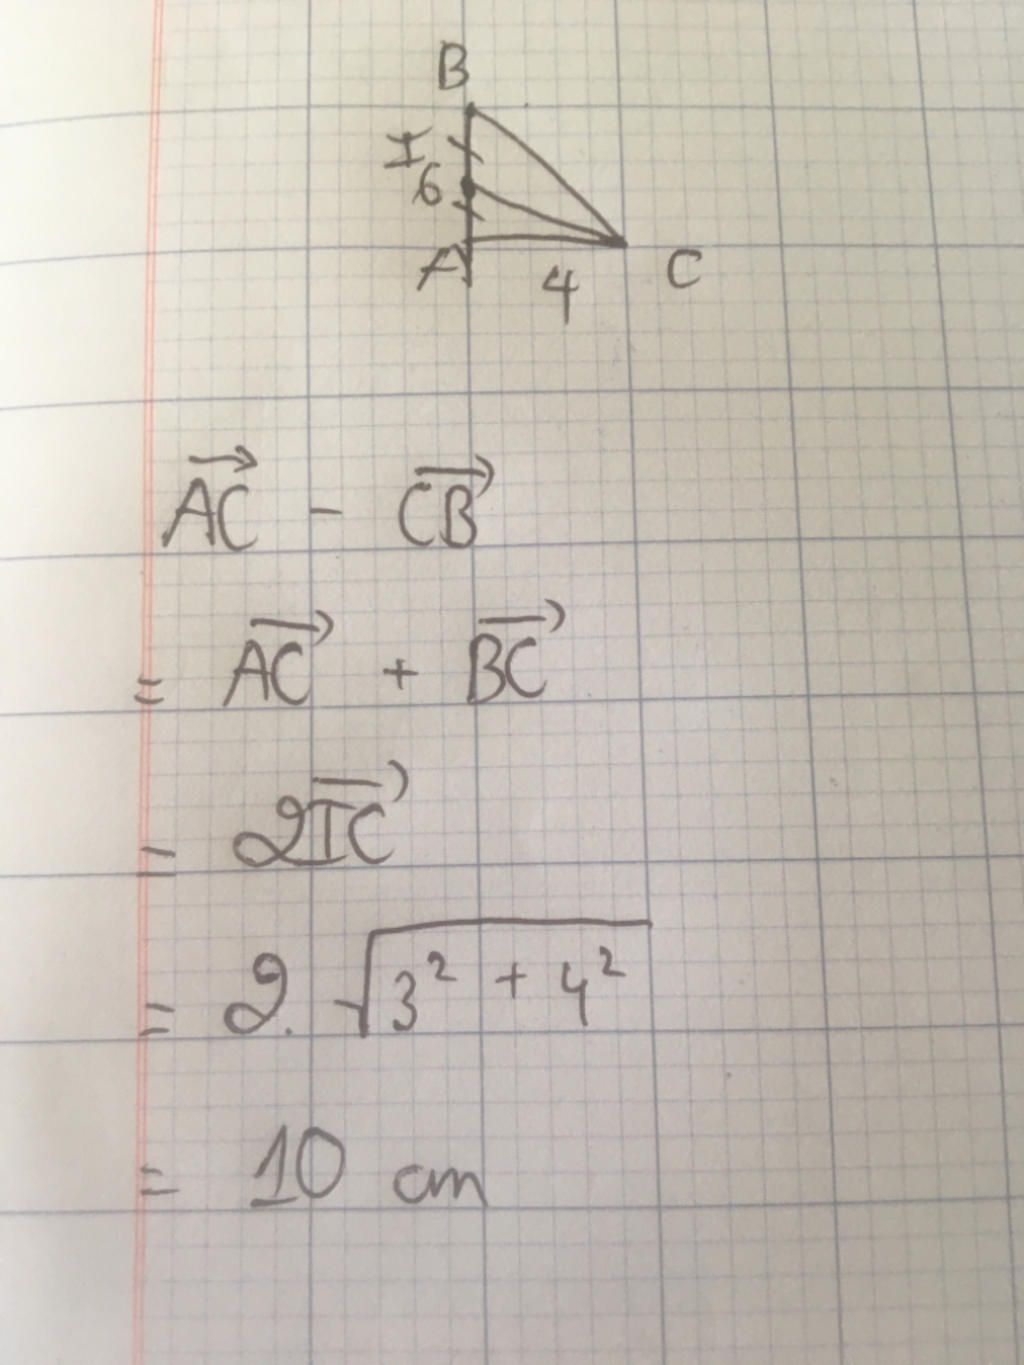 B
I
6
A
4 C
$\overrightarrow{AC} - \overrightarrow{CB}$
$= \overrightarrow{AC} + \overrightarrow{BC}$
$= 2\overrightarrow{IC}$
$= 2 . \sqrt{3^2 + 4^2}$
= 10 cm